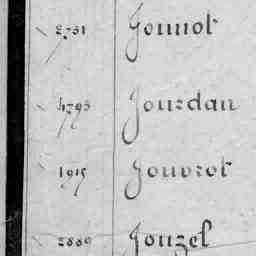 2731 Jounot
4793 Jourdan
1915 Jouvrot
2889 Jouzel